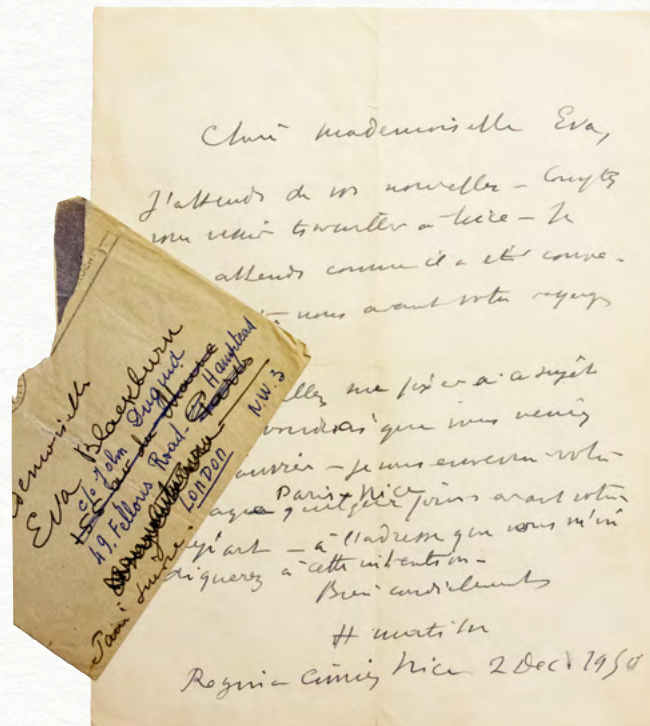 Chère Mademoiselle Eva,
J'attends de vos nouvelles – Comptez
vous venir travailler à Nice – Je
attends comme il a été conve-
nous avant votre voyage
allez me fixer à ce sujet
voudrais que vous veniez
janvier – je vous enverrai votre
Paris Nice
quelques jours avant votre
départ – à l'adresse que vous m'in
diquerez à cette intention –
Bien cordialement
H Matisse
Regina Cimiez Nice 2 Dec. 1950
Mademoiselle
Eva Blackburn
c/o John Duguid
49, Fellows Road – Hampstead
LONDON N.W.3